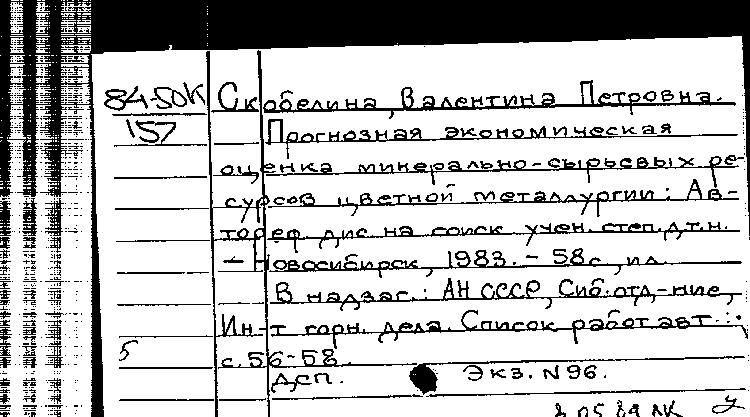 84-50К
157
Скобелина, Валентина Петровна.
Прогнозная экономическая
оценка минерально-сырьевых ре-
сурсов цветной металлургии: Ав-
тореф. дис. на соиск. учен. степ. д.т.н.
- Новосибирск, 1983. - 58с., ил.
В надзаг.: АН СССР, Сиб. отд-ние,
Ин-т горн. дела. Список работ авт.:
с. 56-58.
5
ДСП. Экз. N96.